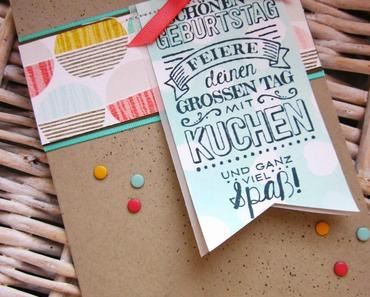 SCHÖNEN
GEBURTSTAG
FEIERE
deinen
GROSSEN TAG
MIT
KUCHEN
UND GANZ
VIEL
Spaß!